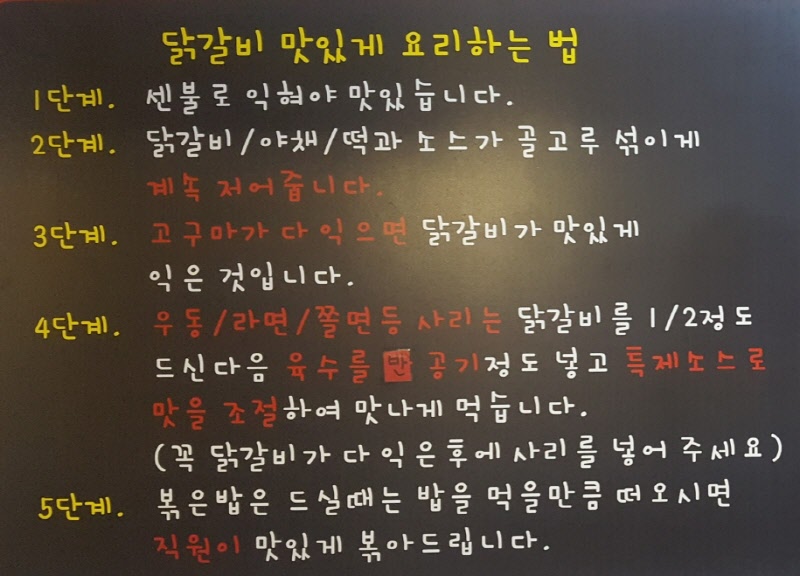 닭갈비 맛있게 요리하는 법
1단계. 센불로 익혀야 맛있습니다.
2단계. 닭갈비/야채/떡과 소스가 골고루 섞이게
계속 저어줍니다.
3단계. 고구마가 다 익으면 닭갈비가 맛있게
익은 것입니다.
4단계. 우동/라면/쫄면등 사리는 닭갈비를 1/2정도
드신다음 육수를 반 공기정도 넣고 특제소스로
맛을 조절하여 맛나게 먹습니다.
(꼭 닭갈비가 다 익은후에 사리를 넣어 주세요)
5단계. 볶은밥은 드실때는 밥을 먹을만큼 떠오시면
직원이 맛있게 볶아드립니다.